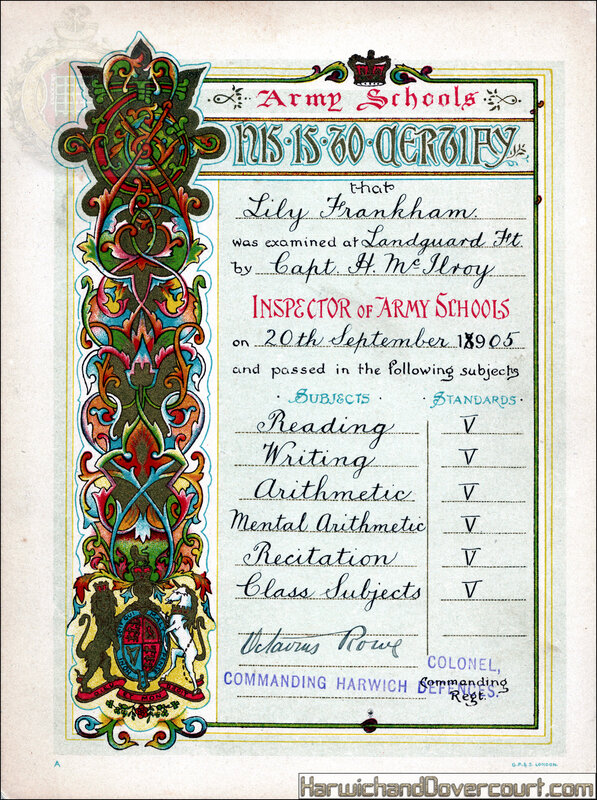 Army Schools
THIS · IS · TO · CERTIFY
that
Lily Frankham.
was examined at Landguard Ft.
by Capt. H. McIlroy
INSPECTOR OF ARMY SCHOOLS
on 20th September 1905
and passed in the following subjects
· SUBJECTS · STANDARDS ·
Reading V
Writing V
Arithmetic V
Mental Arithmetic V
Recitation V
Class Subjects V
Octavius Rowe
COLONEL,
COMMANDING HARWICH DEFENCES.
Commanding
Regt.
DIEU ET MON DROIT
A
G.P. & S. LONDON.
HarwichandDovercourt.com